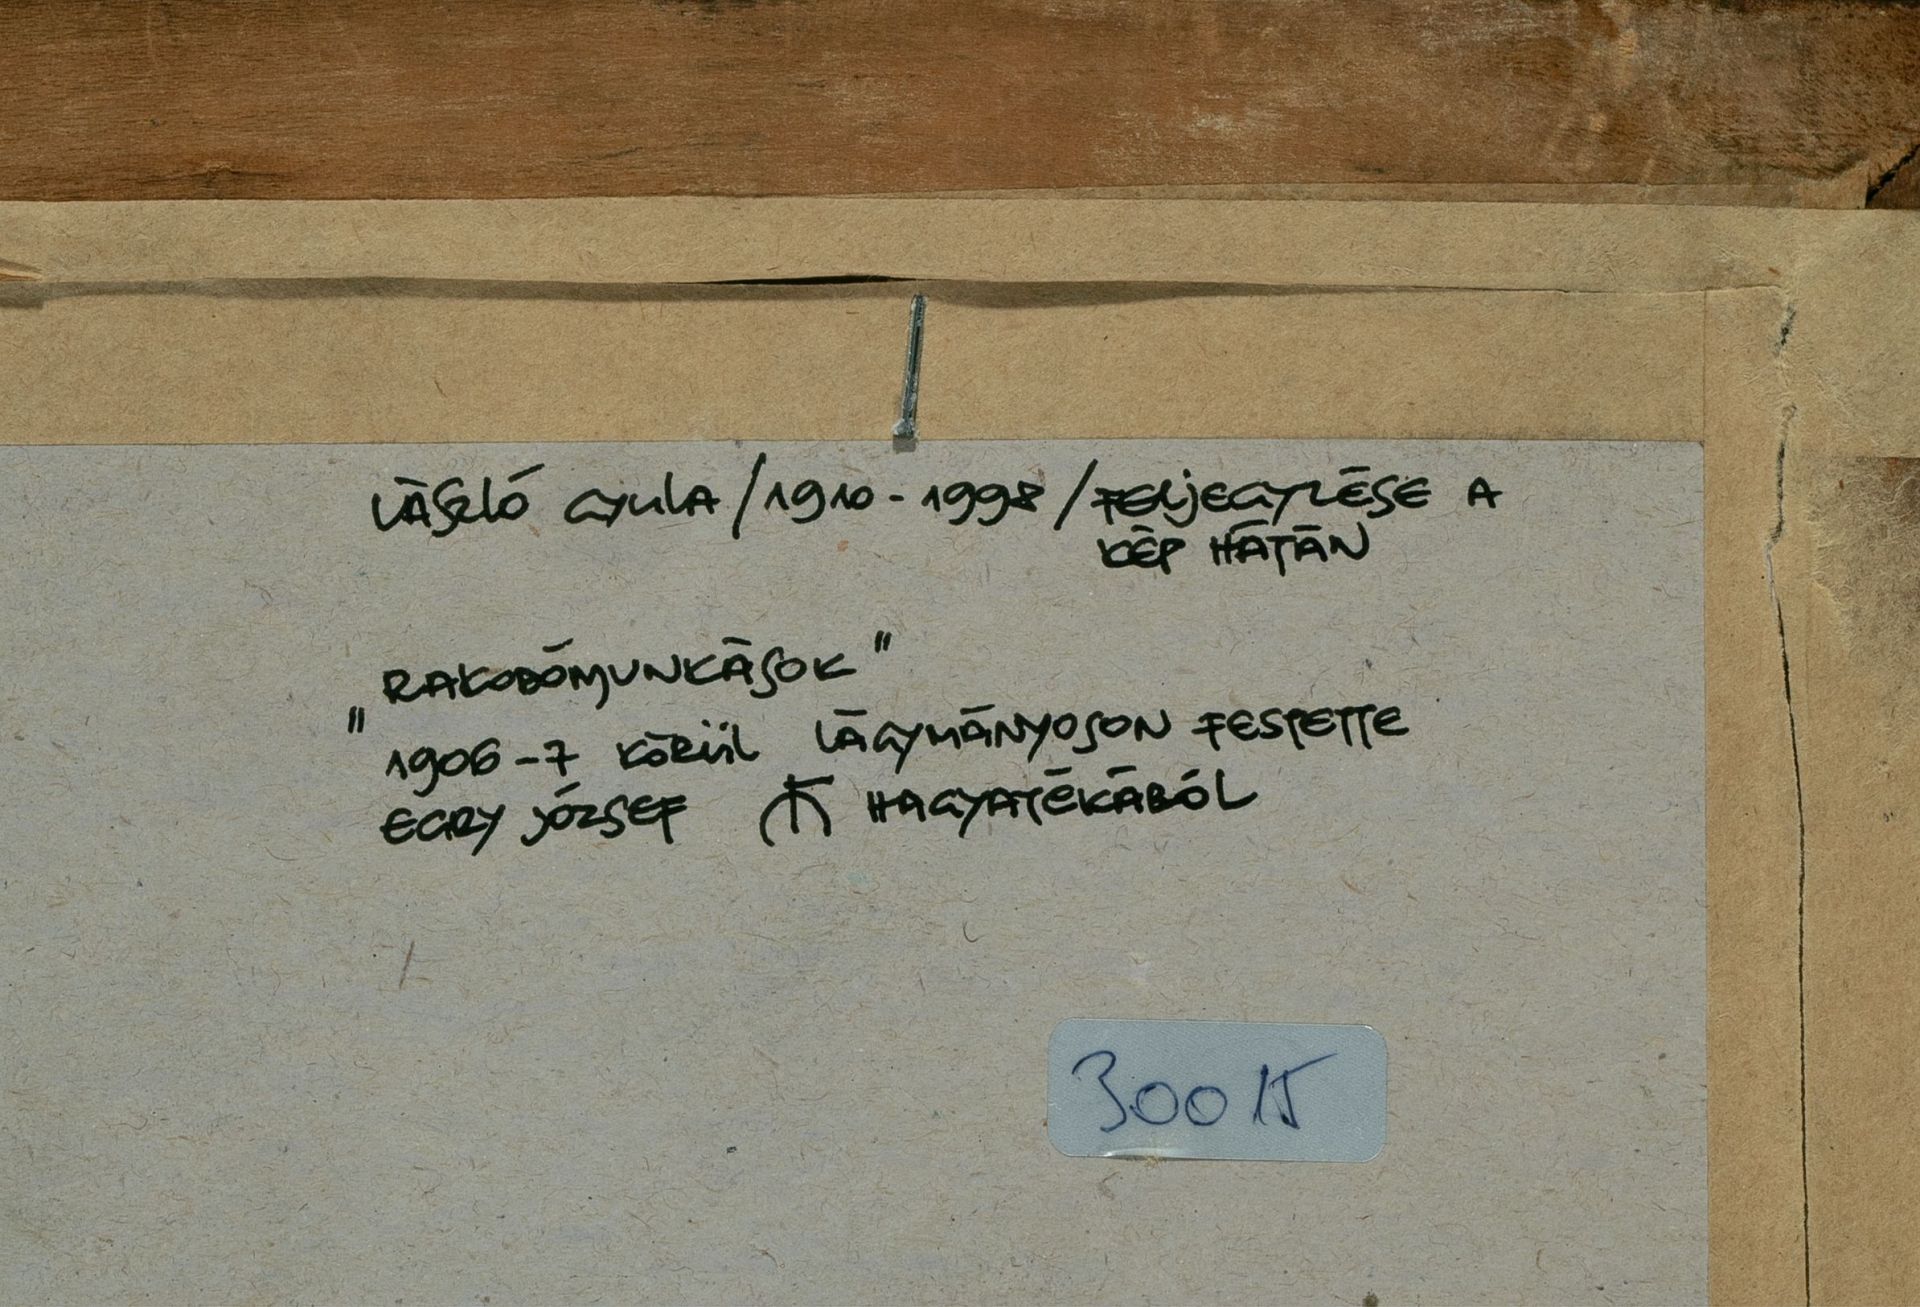 LÁSZLÓ GYULA /1910-1998/ FELJEGYZÉSE A
KÉP HÁTÁN
"RAKODÓMUNKÁSOK"
"1906-7 KÖRÜL LÁGYMÁNYOSON FESTETTE
EGRY JÓZSEF HAGYATÉKÁBÓL
300 15